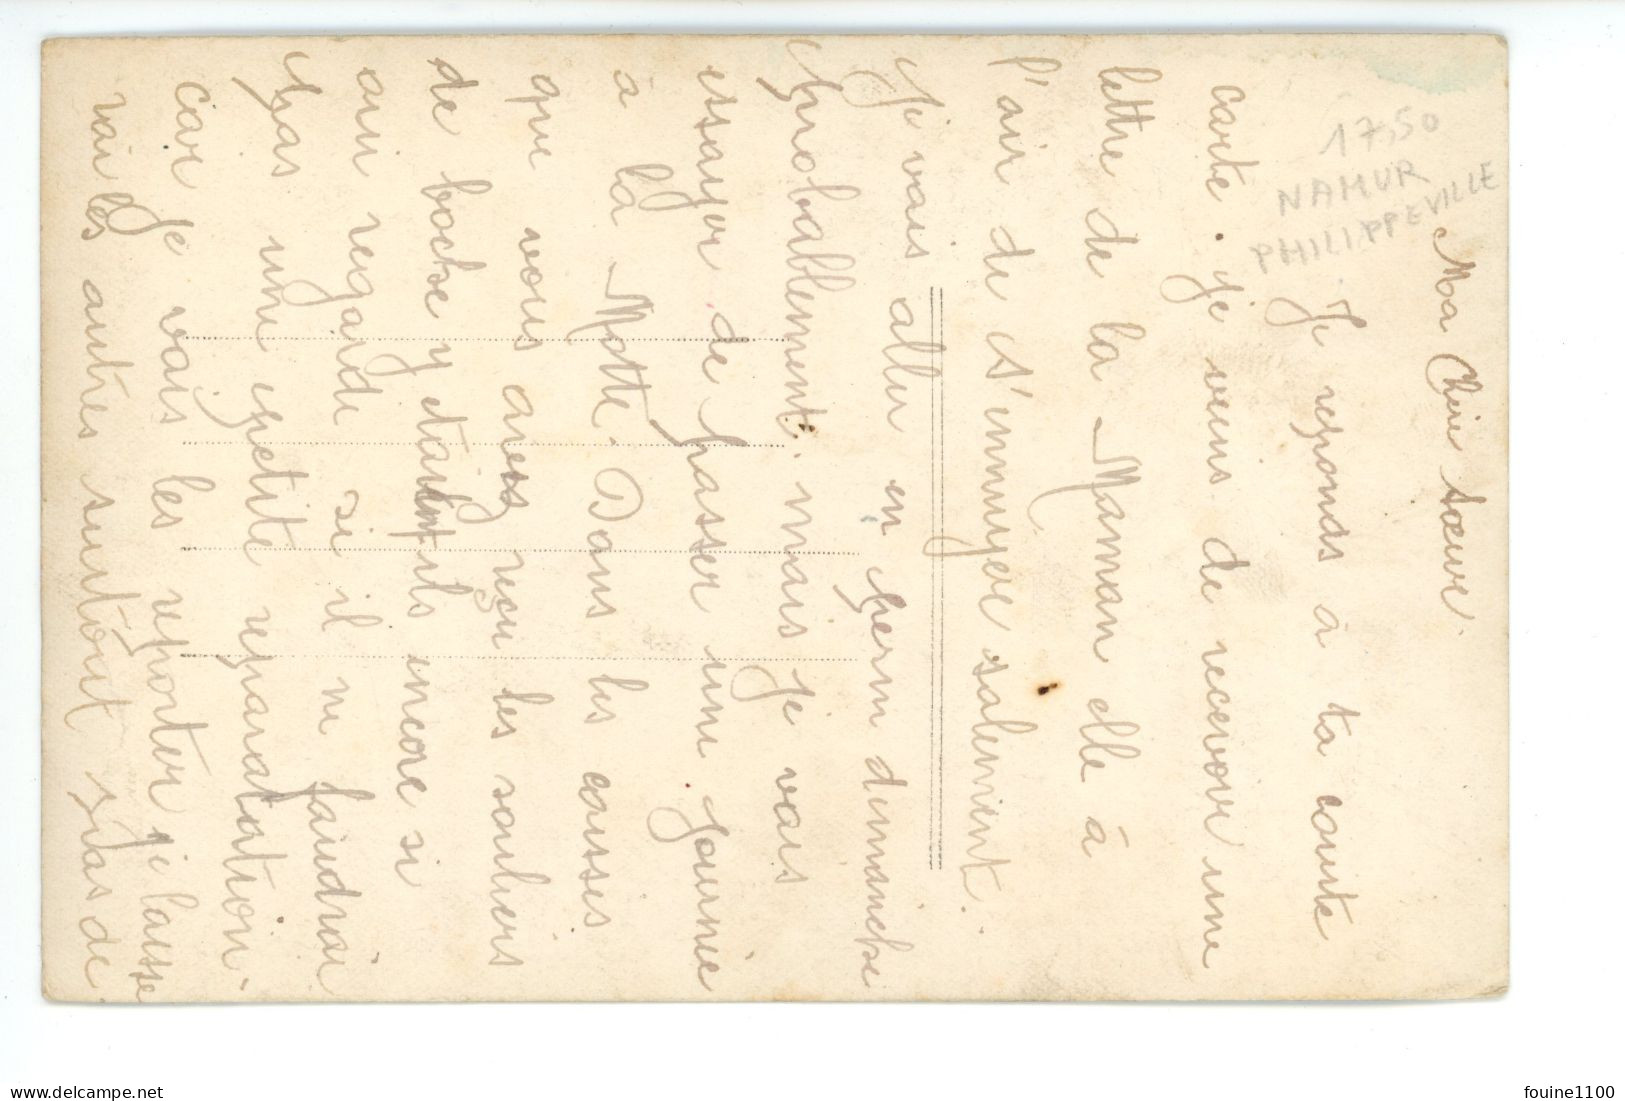 Ma Chere Sœur.
Je reponds à ta courte
carte. je viens de recevoir une
lettre de la Maman elle à
l'air de s'ennuyer salement.
Je vais aller en perm dimanche
probablement. mais je vais
essayer de passer une journée
à la Motte. Dans les caisses
que vous avez reçu les souliers
de boche y etaient ils encore si
oui regarde si il ne faudrai
pas une petite reparation.
car je vais les reporter je laisse
rai les autres surtout pas de
17,50
NAMUR
PHILIPPEVILLE
delcampe.net
fouine1100